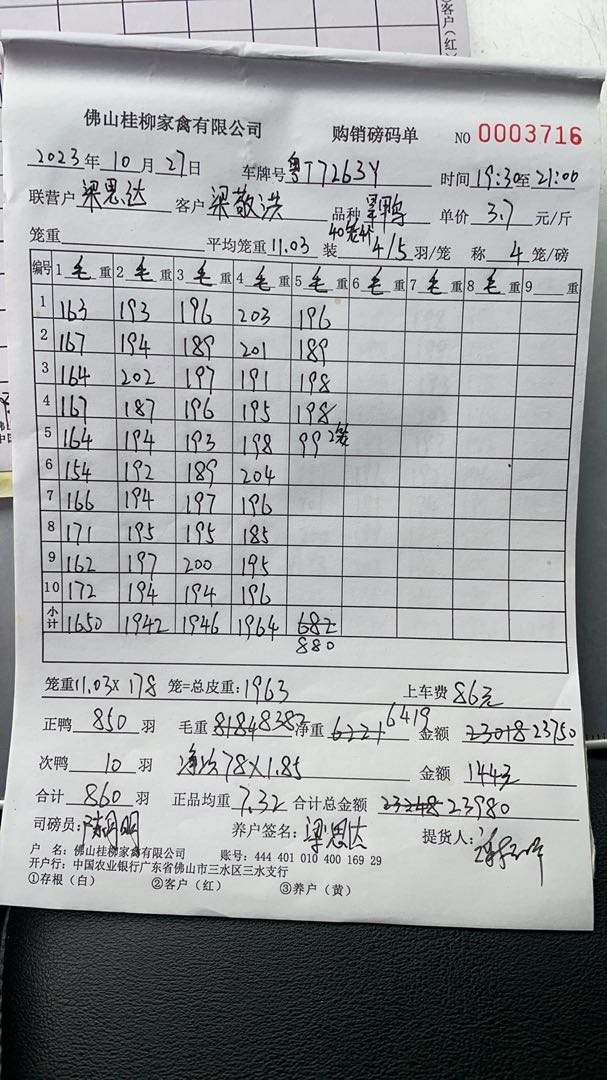 客户(红)
佛山桂柳家禽有限公司 购销磅码单 NO 0003716
2023年10月27日 车牌号粤T7263Y 时间19:30至21:00
联营户 梁思达 客户 梁敬洪 品种 鸭 单价 3.7 元/斤
笼重 平均笼重11.03 装 40笼 4/5 羽/笼 称 4 笼/磅
编号 1 毛 重 2 毛 重 3 毛 重 4 毛 重 5 毛 重 6 毛 重 7 毛 重 8 毛 重 9 重
1 163 193 196 203 196
2 167 194 189 201 189
3 164 202 197 191 198
4 167 187 196 195 198
5 164 194 193 198 99 2笼
6 154 192 189 204
7 166 194 197 196
8 171 195 195 185
9 162 197 200 195
10 172 194 194 196
小计 1650 1942 1946 1964 682
880
笼重11.03×178 笼=总皮重:1963 上车费 86元
正鸭 850 羽 毛重 8184 8382 净重 6221 6419 金额 23018 23750
次鸭 10 羽 净次78×1.85 金额 144元
合计 860 羽 正品均重 7.32 合计总金额 23248 23980
司磅员: 养户签名: 梁思达 提货人:
户 名: 佛山桂柳家禽有限公司 账号: 444 401 010 400 169 29
开户行: 中国农业银行广东省佛山市三水区三水支行
①存根(白) ②客户(红) ③养户(黄)